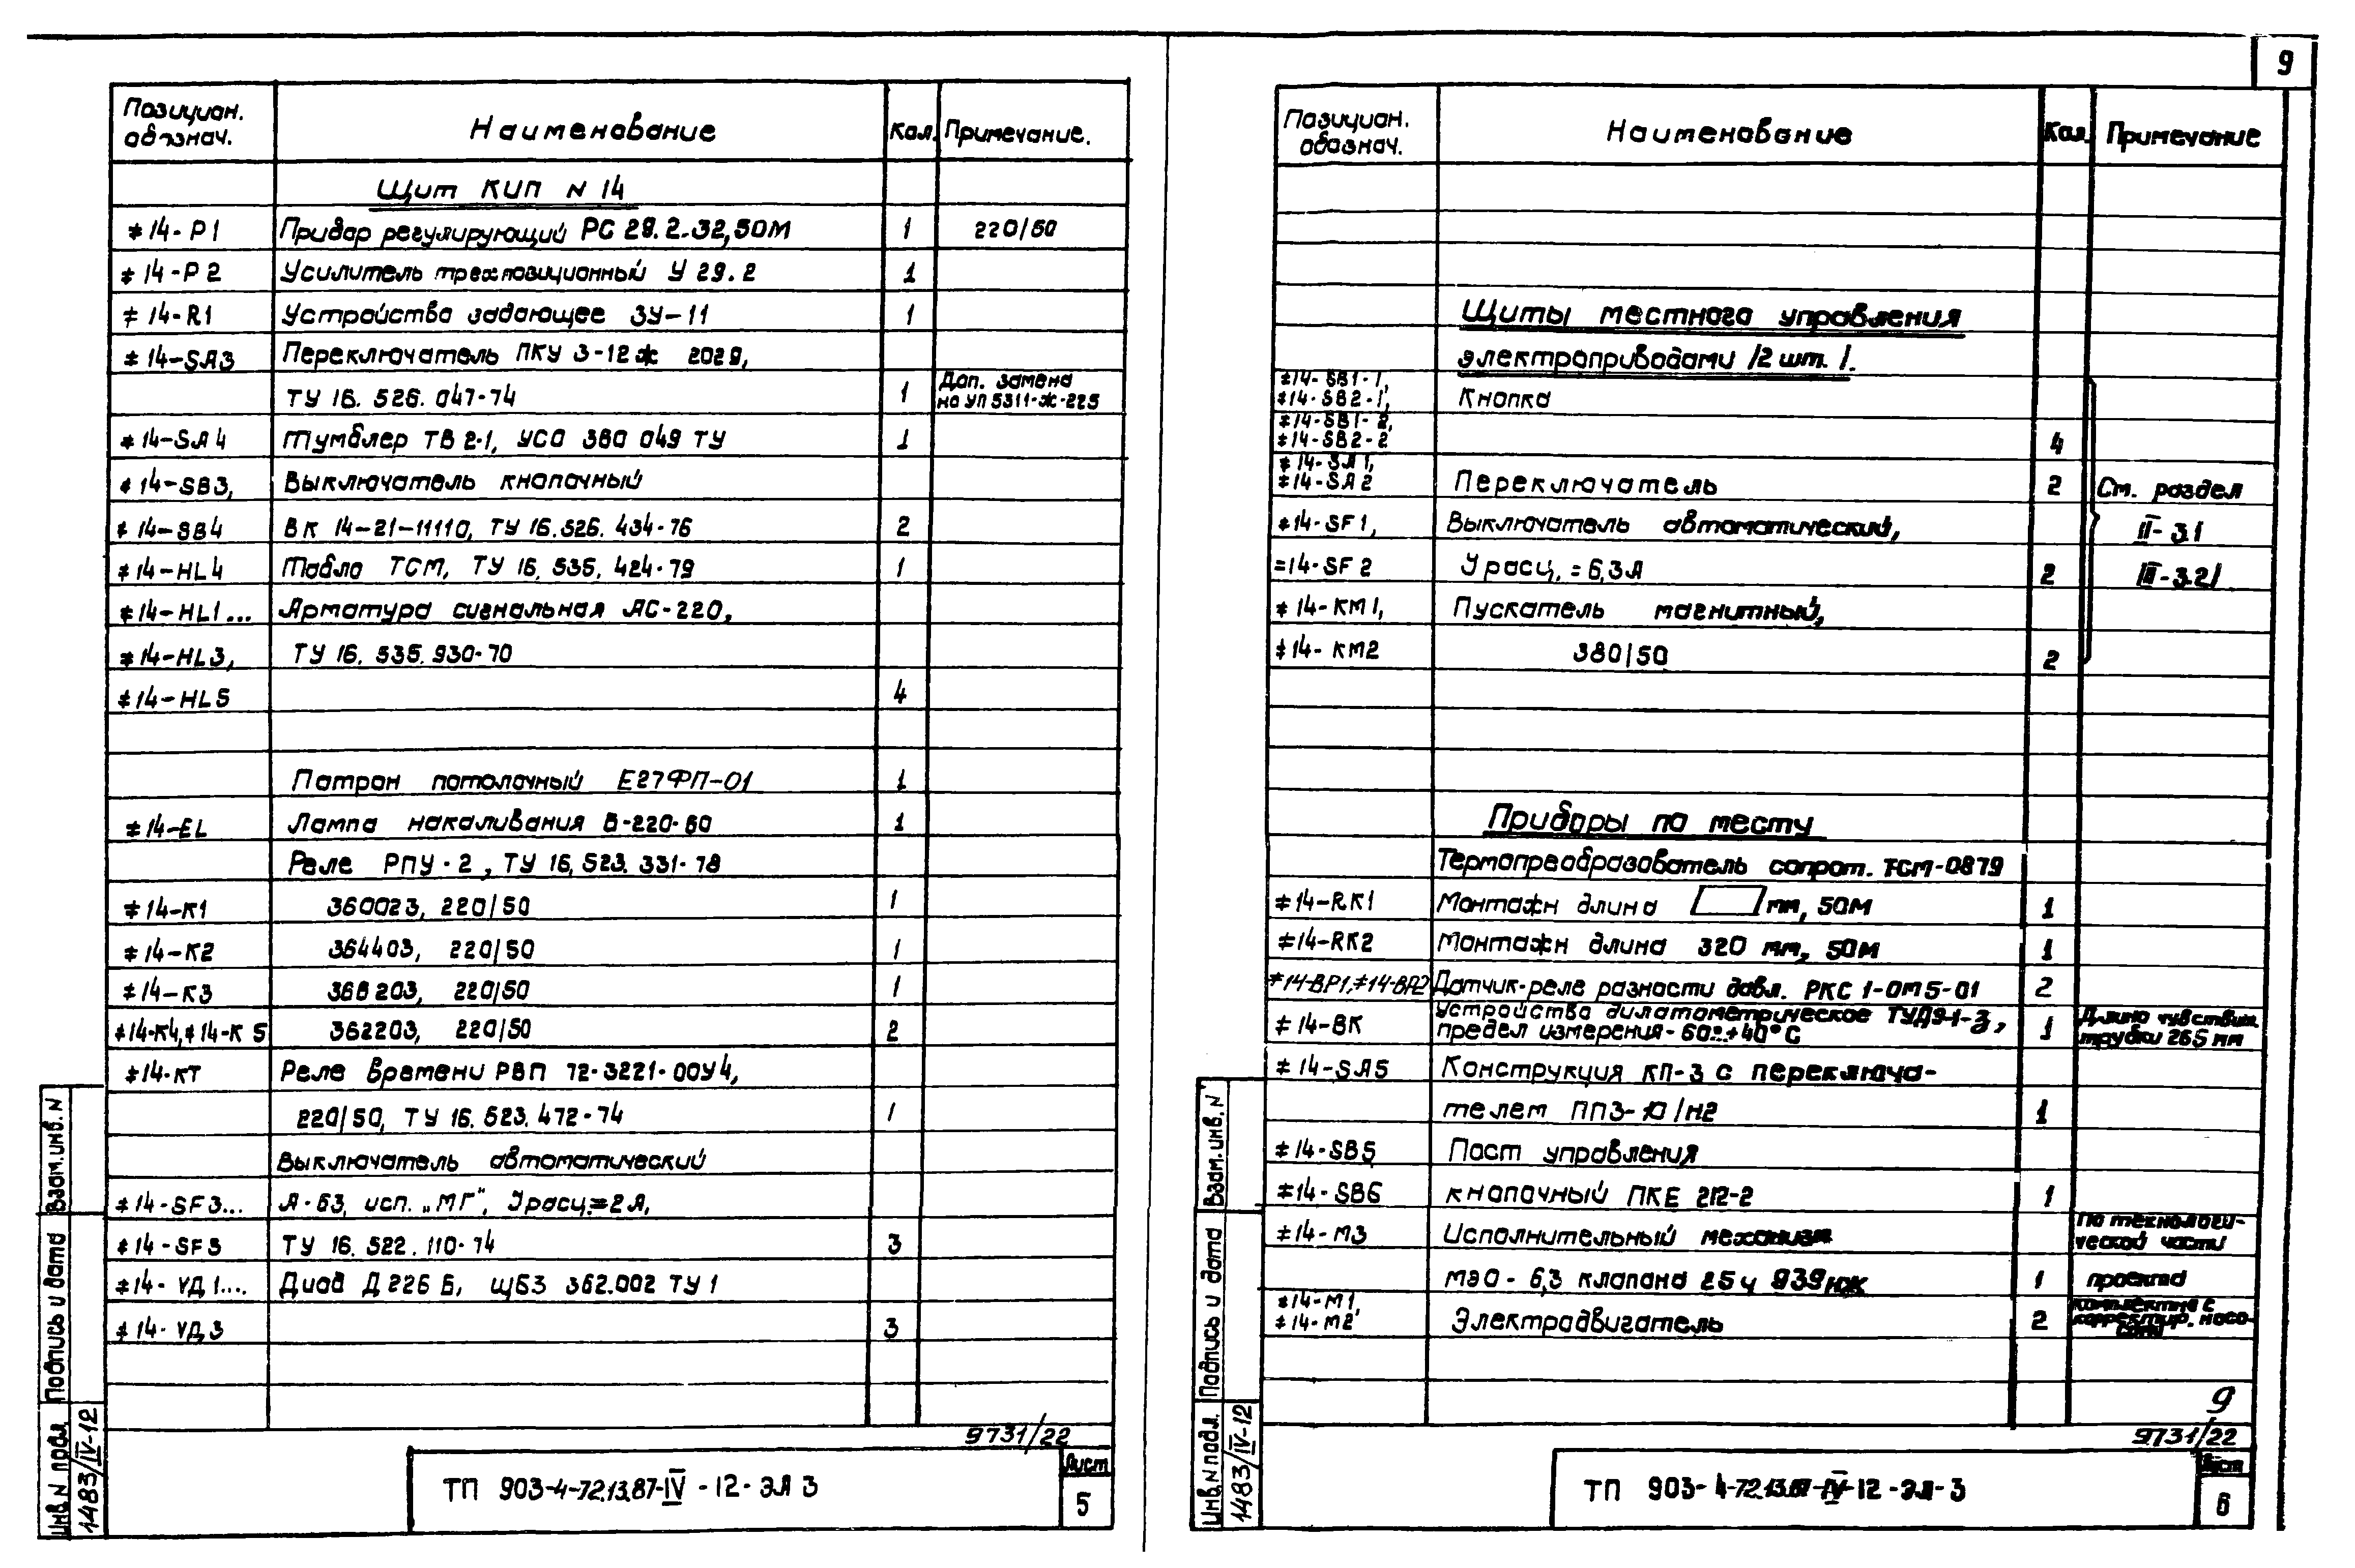 9
Позицион.
обознач.
Наименование
Кол.
Примечание.
Щит КИП N 14
≠14-P1 Прибор регулирующий РС 29.2.32,50М 1 220/50
≠14-P2 Усилитель трехпозиционный У 29.2 1
≠14-R1 Устройство задающее ЗУ-11 1
≠14-SA3 Переключатель ПКУ 3-12ж 2029,
ТУ 16.526.047-74 1 Доп. замена
на УП5311-Ж-225
≠14-SA4 Тумблер ТВ2-1, УСО 360 049 ТУ 1
≠14-SB3, Выключатель кнопочный
≠14-SB4 ВК 14-21-11110, ТУ 16.526.434-76 2
≠14-HL4 Табло ТСМ, ТУ 16.535.424-79 1
≠14-HL1... Арматура сигнальная АС-220,
≠14-HL3, ТУ 16.535.930-70
≠14-HL5 4
Патрон потолочный Е27ФП-01 1
≠14-EL Лампа накаливания Б-220-60 1
Реле РПУ-2, ТУ 16.523.331-78
≠14-K1 360023, 220/50 1
≠14-K2 364403, 220/50 1
≠14-K3 366203, 220/50 1
≠14-K4,≠14-K5 362203, 220/50 2
≠14-KT Реле времени РВП 72-3221-00У4,
220/50, ТУ 16.523.472-74 1
Выключатель автоматический
≠14-SF3... А-63, исп. „МГ", Iрасц.=2А,
≠14-SF5 ТУ 16.522.110-74 3
≠14-VД1.... Диод Д226Б, щБ3 362.002 ТУ1
≠14-VД3 3
9731/22
ТП 903-4-72.13.87-IV-12-ЭА 3
Лист
5
Инв. N подл. Подпись и дата Взам.инв. N
1483/IV-12
Позицион.
обознач.
Наименование
Кол.
Примечание
Щиты местного управления
электроприводами /2 шт./.
≠14-SB1-1,
≠14-SB2-1, Кнопка
≠14-SB1-2,
≠14-SB2-2 4
≠14-SA1,
≠14-SA2 Переключатель 2 См. раздел
≠14-SF1, Выключатель автоматический, II-3.1
=14-SF2 Iрасц.=6,3А 2 /II-3.2/
≠14-KM1, Пускатель магнитный,
≠14-KM2 380/50 2
Приборы по месту
Термопреобразователь сопрот. ТСМ-0879
≠14-RK1 Монтажн длина мм, 50М 1
≠14-RK2 Монтажн длина 320 мм, 50М 1
≠14-BP1,≠14-BP2 Датчик-реле разности давл. РКС 1-ОМ5-01 2
≠14-BK Устройство дилатометрическое ТУДЭ-1-3,
предел измерения-60°..+40°С 1 Длина чувствит.
трубки 265 мм
≠14-SA5 Конструкция КП-3 с переключа-
телем ПП3-10/Н2 1
≠14-SB5 Пост управления
≠14-SB6 кнопочный ПКЕ 212-2 1
≠14-M3 Исполнительный механизм По технологи-
ческой части
МЭО-6,3 клапана 25ч 939нж 1 проекта
≠14-M1,
≠14-M2 Электродвигатель 2 комплектно с
корректир. насо-
сами
9
9731/22
ТП 903-4-72.13.87-IV-12-ЭА-3
Лист
6
Инв. N подл. Подпись и дата Взам.инв. N
1483/IV-12